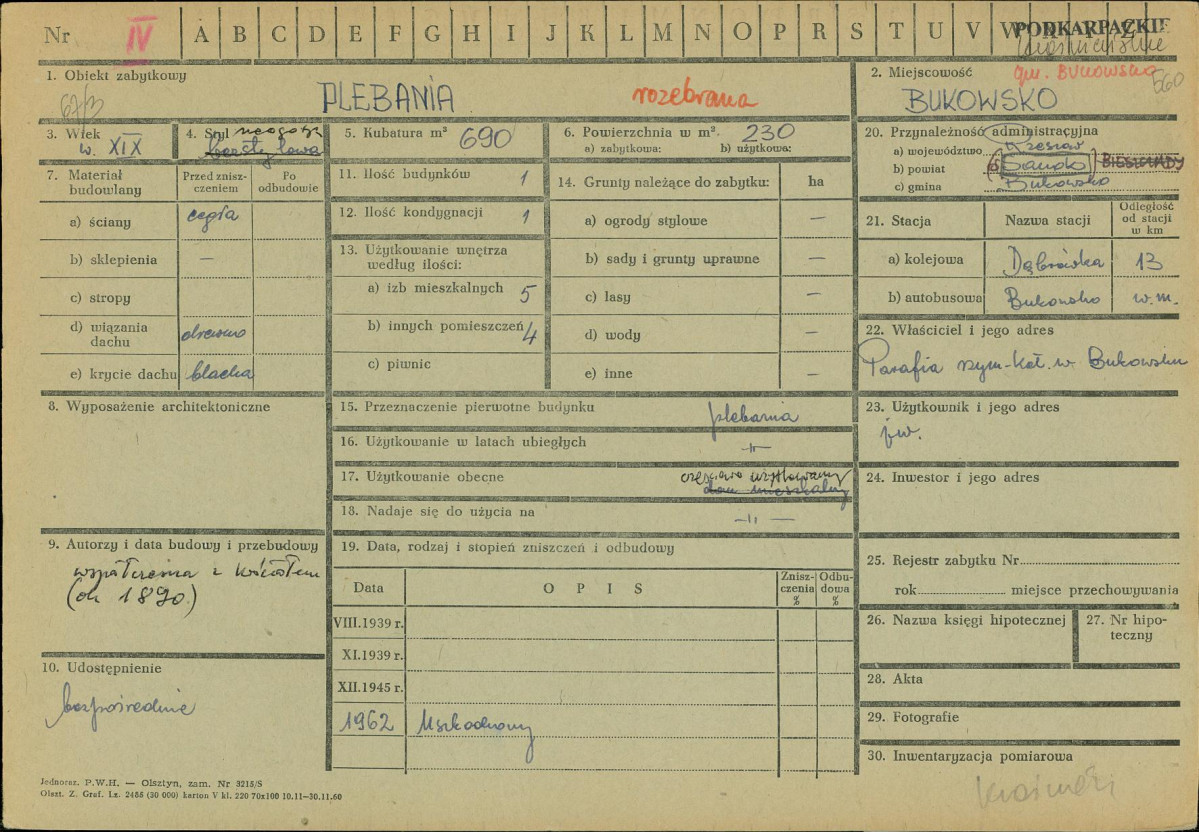 Nr IV A B C D E F G H I J K L M N O P R S T U V W Y Z
PODKARPACKIE
krośnieńskie
1. Obiekt zabytkowy
PLEBANIA
rozebrana
2. Miejscowość
gm. BUKOWSKO
560
BUKOWSKO
3. Wiek
w. XIX
4. Styl neogotyk
bezstylowa
5. Kubatura m³ 690
6. Powierzchnia w m². 230
a) zabytkowa: b) użytkowa:
20. Przynależność administracyjna
a) województwo Rzeszów
b) powiat Sanok BIESZCZADY
c) gmina Bukowsko
7. Materiał budowlany
Przed zniszczeniem
Po odbudowie
a) ściany cegła
b) sklepienia —
c) stropy
d) wiązania dachu drewno
e) krycie dachu blacha
11. Ilość budynków 1
12. Ilość kondygnacji 1
13. Użytkowanie wnętrza
według ilości:
a) izb mieszkalnych 5
b) innych pomieszczeń 4
c) piwnic
14. Grunty należące do zabytku: ha
a) ogrody stylowe —
b) sady i grunty uprawne —
c) lasy —
d) wody —
e) inne —
21. Stacja Nazwa stacji Odległość od stacji w km
a) kolejowa Dąbrówka 13
b) autobusowa Bukowsko w.m.
22. Właściciel i jego adres
Parafia rzym-kat. w Bukowsku
8. Wyposażenie architektoniczne
15. Przeznaczenie pierwotne budynku plebania
16. Użytkowanie w latach ubiegłych —"—
17. Użytkowanie obecne częściowo użytkowany
dom mieszkalny
18. Nadaje się do użycia na —"—
23. Użytkownik i jego adres
jw.
24. Inwestor i jego adres
9. Autorzy i data budowy i przebudowy
współczesna z kościołem
(ok 1890.)
10. Udostępnienie
bezpośrednie
19. Data, rodzaj i stopień zniszczeń i odbudowy
Data OPIS Zniszczenia % Odbudowa %
VIII.1939 r.
XI.1939 r.
XII.1945 r.
1962 Uszkodzony
25. Rejestr zabytku Nr
rok miejsce przechowywania
26. Nazwa księgi hipotecznej
27. Nr hipoteczny
28. Akta
29. Fotografie
30. Inwentaryzacja pomiarowa
Jednoraz. P.W.H. — Olsztyn, zam. Nr 3215/S
Olszt. Z. Graf. Lz. 2455 (30 000) karton V kl. 220 70x100 10.11—30.11.60